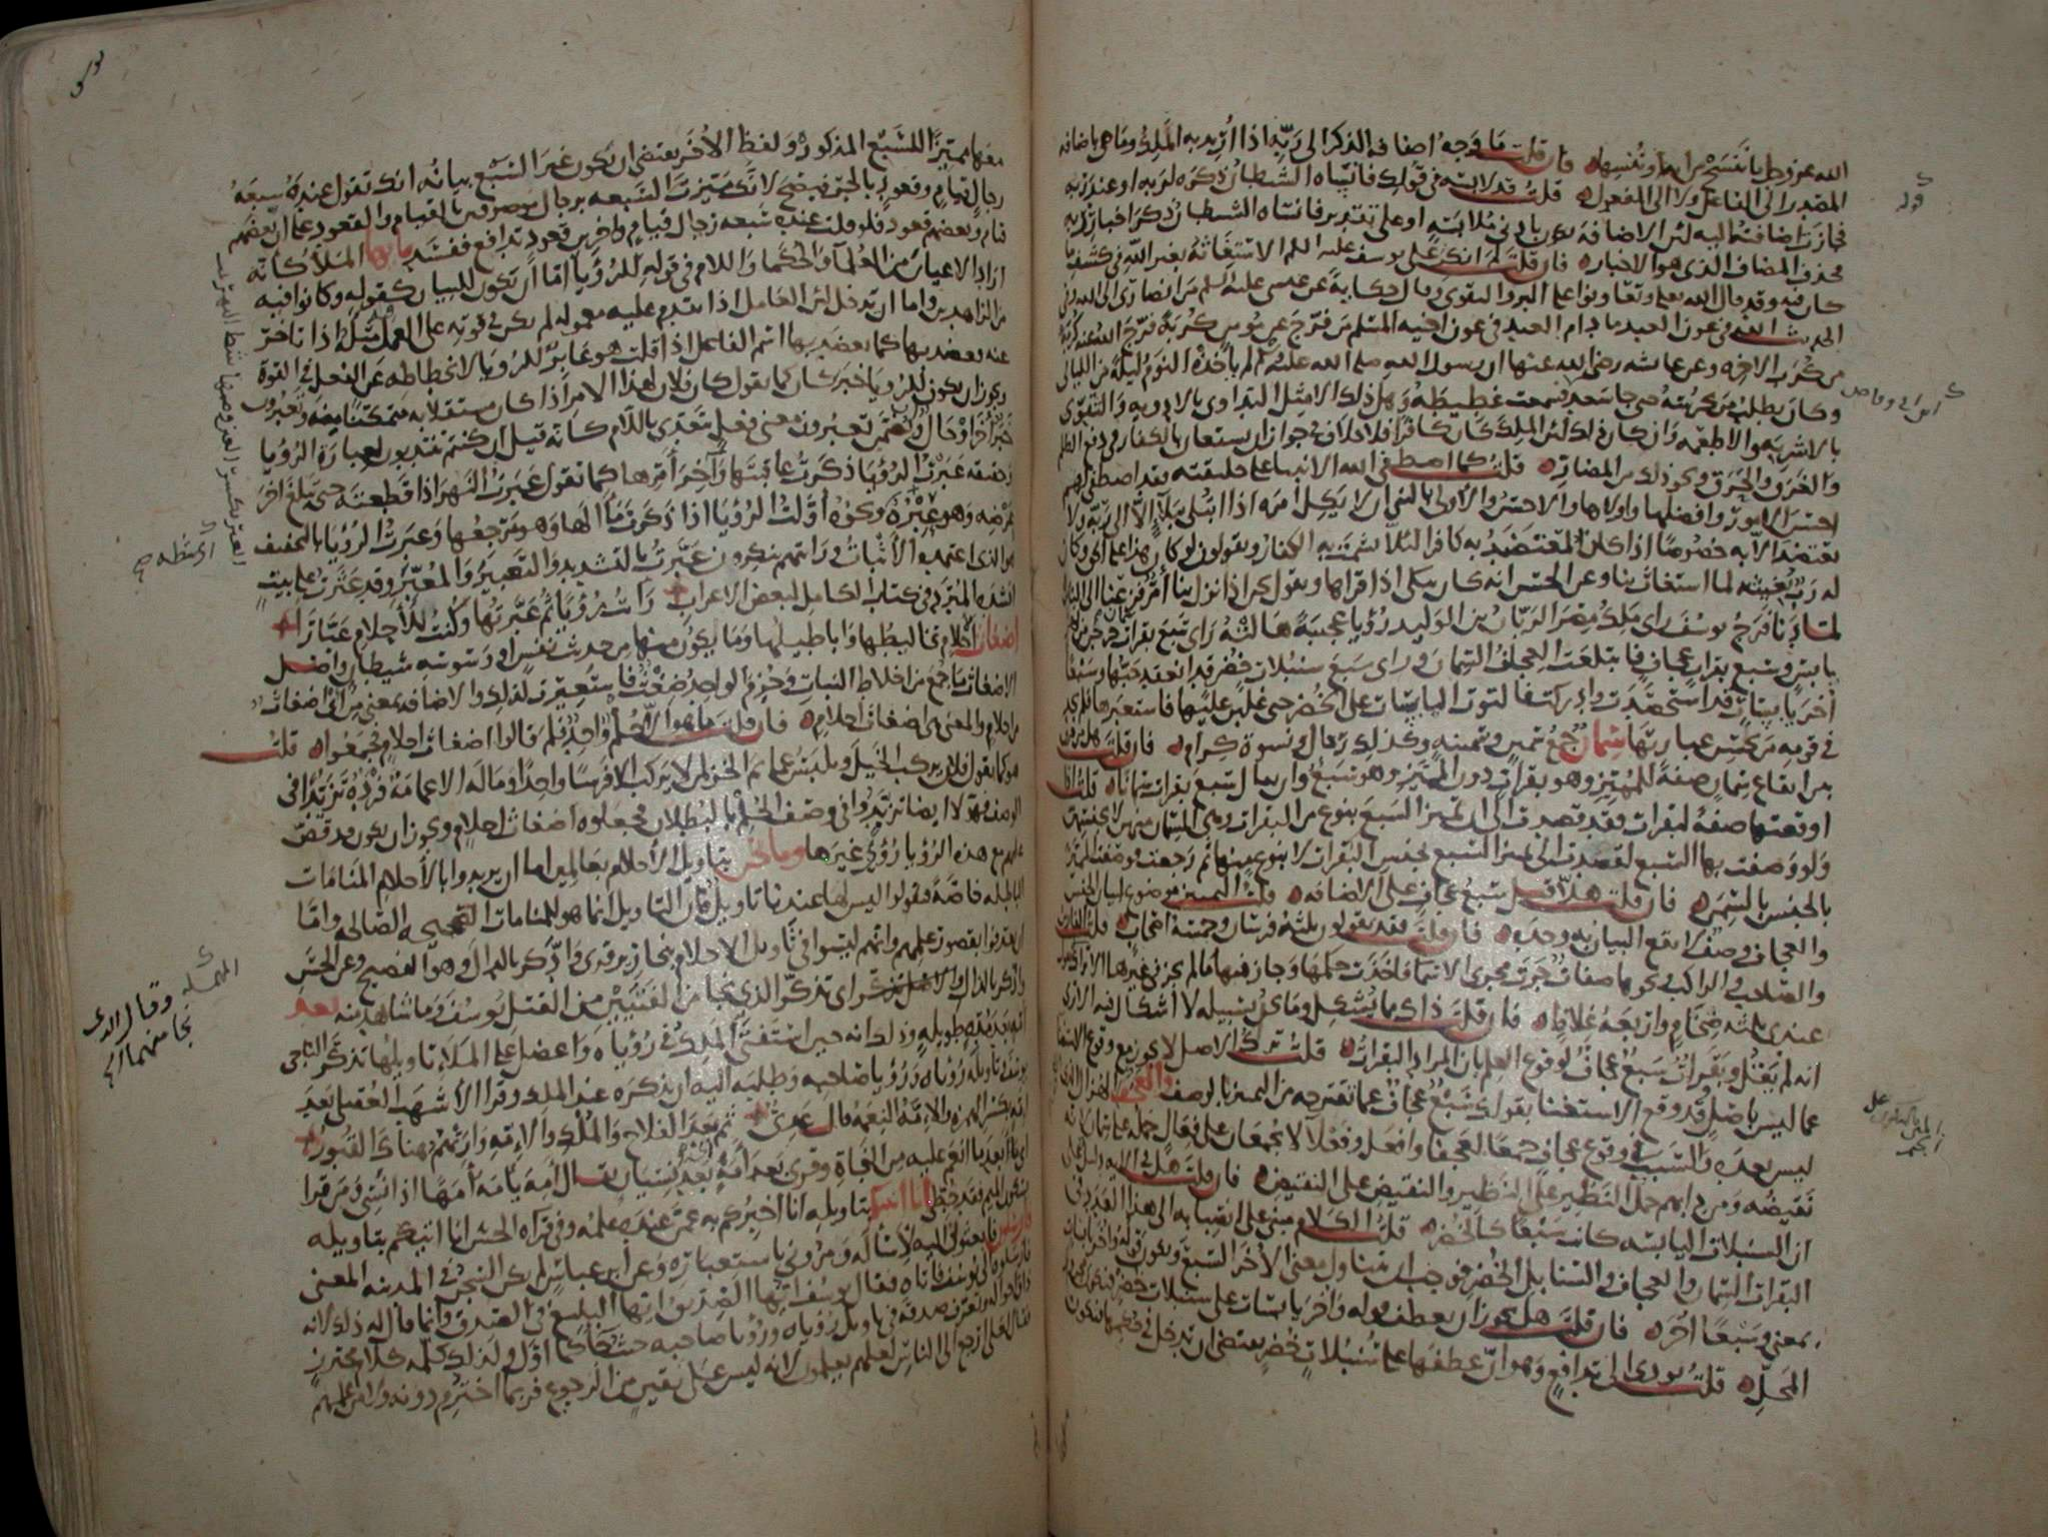 الله عز وجل فإن قلت ما وجه اضافه الذكر الى ربه اذا اريد به الملك وما هي باضافه
المصدر الى الفاعل ولا الى المفعول قلت قد لابسه في قولك فانساه الشيطان ذكره لربه او عند ربه
فجازت اضافته اليه لان الاضافة تكون بادنى ملابسة او على تقدير فانساه الشيطان ذكر اخبار ربه
فحذف المضاف الذي هو الاخبار فان قلت لم انكر على يوسف عليه السلم الاستغاثة بغير الله في كشف ما
كان فيه وقد قال الله تعلى وتعاونوا على البر والتقوى وقال حكاية عن عيسى عليه السلم من انصاري الى الله وفي
الحديث الله في عون العبد ما دام العبد في عون اخيه المسلم من فرج عن مؤمن كربة فرج الله عنه كربة
من كرب الاخرة وعن عائشه رضي الله عنها ان رسول الله صلى الله عليه وسلم لم ياخذه النوم ليلة من الليالي
وكان يطلب من يحرسه حتى جا سعد فسمعت غطيطه وهل ذلك الا مثل التداوي بالادويه والتقوي
بالاشربه والاطعمه وان كان ذلك لان الملك كان كافرا فلا خلاف في جواز ان يستعان بالكفار في دفع الظلم
والغرق والحرق ونحو ذلك من المضار قلت كما اصطفى الله الانبيا على خليقته فقد اصطفى لهم
احسن الامور وافضلها واولاها والاحسن والاولى بالنبي ان لا يكل امره اذا ابتلي ببلاء الا الى ربه ولا
يعتضد الا به خصوصا اذا كان المعتضد به كافرا لئلا يشمت به الكفار ويقولوا لو كان هذا على الحق وكان
له رب يغيثه لما استغاث بنا وعن الحسن انه كان يبكي اذا قراها ويقول نحن اذا نزل بنا امر فزعنا الى الناس
لما دنا فرج يوسف راى ملك مصر الريان بن الوليد رؤيا عجيبة هالته راى سبع بقرات سمان خرجن من نهر
يابس وسبع بقرات عجاف فابتلعت العجاف السمان وراى سبع سنبلات خضر قد انعقد حبها وسبعا
اخر يابسات قد استحصدت وادركت فالتوت اليابسات على الخضر حتى غلبن عليها فاستعبرها فلم يجد
في قومه من يحسن عبارتها سمان جمع سمين وسمينه وكذلك رجال ونسوة كرام فان قلت هل من فرق
بين ايقاع سمان صفة للمميز وهو بقرات دون المميز وهو سبع وان يقال سبع بقرات سمانا قلت اذا
اوقعتها صفة لبقرات فقد قصدت الى ان تميز السبع بنوع من البقرات وهي السمان منهن لا بجنسهن
ولو وصفت بها السبع لقصدت الى تمييز السبع بجنس البقرات لا بنوع منها ثم رجعت فوصفت المميز
بالجنس بالسمن فان قلت هلا قيل سبع عجاف على الاضافه قلت التمييز موضوع لبيان الجنس
والعجاف وصف لا يقع البيان به وحده فان قلت فقد يقولون ثلثة فرسان وخمسة اصحاب قلت الفارس
والصاحب والراكب ونحوها صفات جرت مجرى الاسما فاخذت حكمها وجاز فيها ما لم يجز في غيرها الا تراك لا تقول
عندي ثلثه ضخام واربعة غلاظ فان قلت ذاك مما يشكل وما نحن بسبيله لا اشكال فيه الا ترى
انه لم يقل وبقرات سبع عجاف لوقوع العلم بان المراد البقرات قلت ترك الاصل لا يجوز مع وقوع الاستغنا
عما ليس باصل وقد وقع الاستغنا بقولك سبع عجاف عما تقترحه من التمييز بالوصف والعجف الهزال الذي
ليس بعده والسبب في وقوع عجاف جمعا لعجفا وافعل وفعلا لا يجمعان على فعال حمله على سمان لانه
نقيضه ومن دابهم حمل النظير على النظير والنقيض على النقيض فان قلت هل في الايه دليل على
ان السنبلات اليابسه كانت سبعا كالخضر قلت الكلام مبني على انصبابه الى هذا العدد في
البقرات السمان والعجاف والسنابل الخضر فوجب ان يتناول معنى الاخر السبع ويكون قوله واخر يابسات
بمعنى وسبعا اخر فان قلت هل يجوز ان يعطف قوله واخر يابسات على سنبلات خضر فيكون مجرور
المحل قلت يودي الى تدافع وهو ان عطفها على سنبلات خضر يقتضي ان تدخل في حكمها فتكون
معها مميزا للسبع المذكور ولفظ الاخر يقتضي ان تكون غير السبع بيانه انك تقول عنده سبعه
رجال قيام وقعود بالجر فيصح لانك ميزت السبعه برجال موصوفين بالقيام والقعود على ان بعضهم
قيام وبعضهم قعود فلو قلت عنده سبعه رجال قيام واخرين قعود تدافع ففسد يا ايها الملا كانه
اراد الاعيان من العلما والحكما واللام في قوله للرؤيا اما ان تكون للبيان كقوله وكانوا فيه
من الزاهدين واما ان تدخل لان العامل اذا تقدم عليه معموله لم يكن في قوته على العمل فيه مثله اذا تاخر
عنه فعضد بها كما يعضد بها اسم الفاعل اذا قلت هو عابر للرؤيا لانحطاطه عن الفعل في القوة
ويجوز ان يكون للرؤيا خبر كان كما تقول كان فلان لهذا الامر اذا كان مستقلا به متمكنا منه وتعبرون
خبرا اخر او حالا وان يضمن تعبرون معنى فعل يتعدى باللام كانه قيل ان كنتم تنتدبون لعبارة الرؤيا
وحقيقة عبرت الرؤيا ذكرت عاقبتها واخر امرها كما تقول عبرت النهر اذا قطعته حتى تبلغ اخر
عرضه وهو عبره ونحوه اولت الرؤيا اذا ذكرت مآلها وهو مرجعها وعبرت الرؤيا بالتخفيف
هو الذي اعتمده الاثبات ورايتهم ينكرون عبرت بالتشديد والتعبير والمعبر وقد عثرت على بيت
انشده المبرد في كتاب الكامل لبعض الاعراب رايت رؤيا ثم عبرتها وكنت للاحلام عبارا
اضغاث احلام تخاليطها واباطيلها وما يكون منها من حديث نفس او وسوسه شيطان واصل
الاضغاث ما جمع من اخلاط النبات وحزم الواحد ضغث فاستعيرت لذلك والاضافه بمعنى من اي اضغاث
من احلام والمعنى هي اضغاث احلام فان قلت ما هو الا حلم واحد فلم قالوا اضغاث احلام فجمعوا قلت
هو كما تقول فلان يركب الخيل ويلبس عمائم الخز لمن لا يركب الا فرسا واحدا وماله الا عمامة فردة تزيدا في
الوصف فهؤلا ايضا تزيدوا في وصف الحلم بالبطلان فجعلوه اضغاث احلام ويجوز ان يكون قد قص
عليهم مع هذه الرؤيا رؤى غيرها وما نحن بتاويل الاحلام بعالمين اما ان يريدوا بالاحلام المنامات
الباطله خاصة فيقولوا ليس لها عندنا تاويل فان التاويل انما هو للمنامات الصحيحه الصالحه واما
ان يعترفوا بقصور علمهم وانهم ليسوا في تاويل الاحلام بنحارير قرئ وادكر بالدال وهو الفصيح وعن الحسن
واذكر بالذال والاصل تذكر اي تذكر الذي نجا من الفتيين من القتل يوسف وما شاهد منه بعد
امة بعد مدة طويلة وذلك انه حين استفتى الملك في رؤياه واعضل على الملا تاويلها تذكر الناجي
يوسف وتاويله رؤياه ورؤيا صاحبه وطلبه اليه ان يذكره عند الملك وقرا الاشهب العقيلي بعد
امة بكسر الهمزه والامة النعمه قال عدي ثم بعد الفلاح والملك والامة وارتهم هناك القبور
اي بعد ما انعم عليه من النجاة وقرئ بعد امه بعد نسيان يقال امه يامه امها اذا نسي ومن قرا
بسكون الميم فقد خطئ انا انبئكم بتاويله انا اخبركم به عمن عنده علمه وفي قراة الحسن انا اتيكم بتاويله
فارسلون فابعثوني اليه لاساله ومروني باستعباره وعن ابن عباس لم يكن السجن في المدينه المعنى
فارسلوه الى يوسف فاتاه فقال يوسف ايها الصديق ايها البليغ في الصدق وانما قال له ذلك لانه
ذاق احواله وتعرف صدقه في تاويل رؤياه ورؤيا صاحبه حيث جا كما اول ولذلك كلمه كلام محترز
فقال لعلي ارجع الى الناس لعلهم يعلمون لانه ليس على يقين من الرجوع فربما اخترم دونه ولا من علمهم